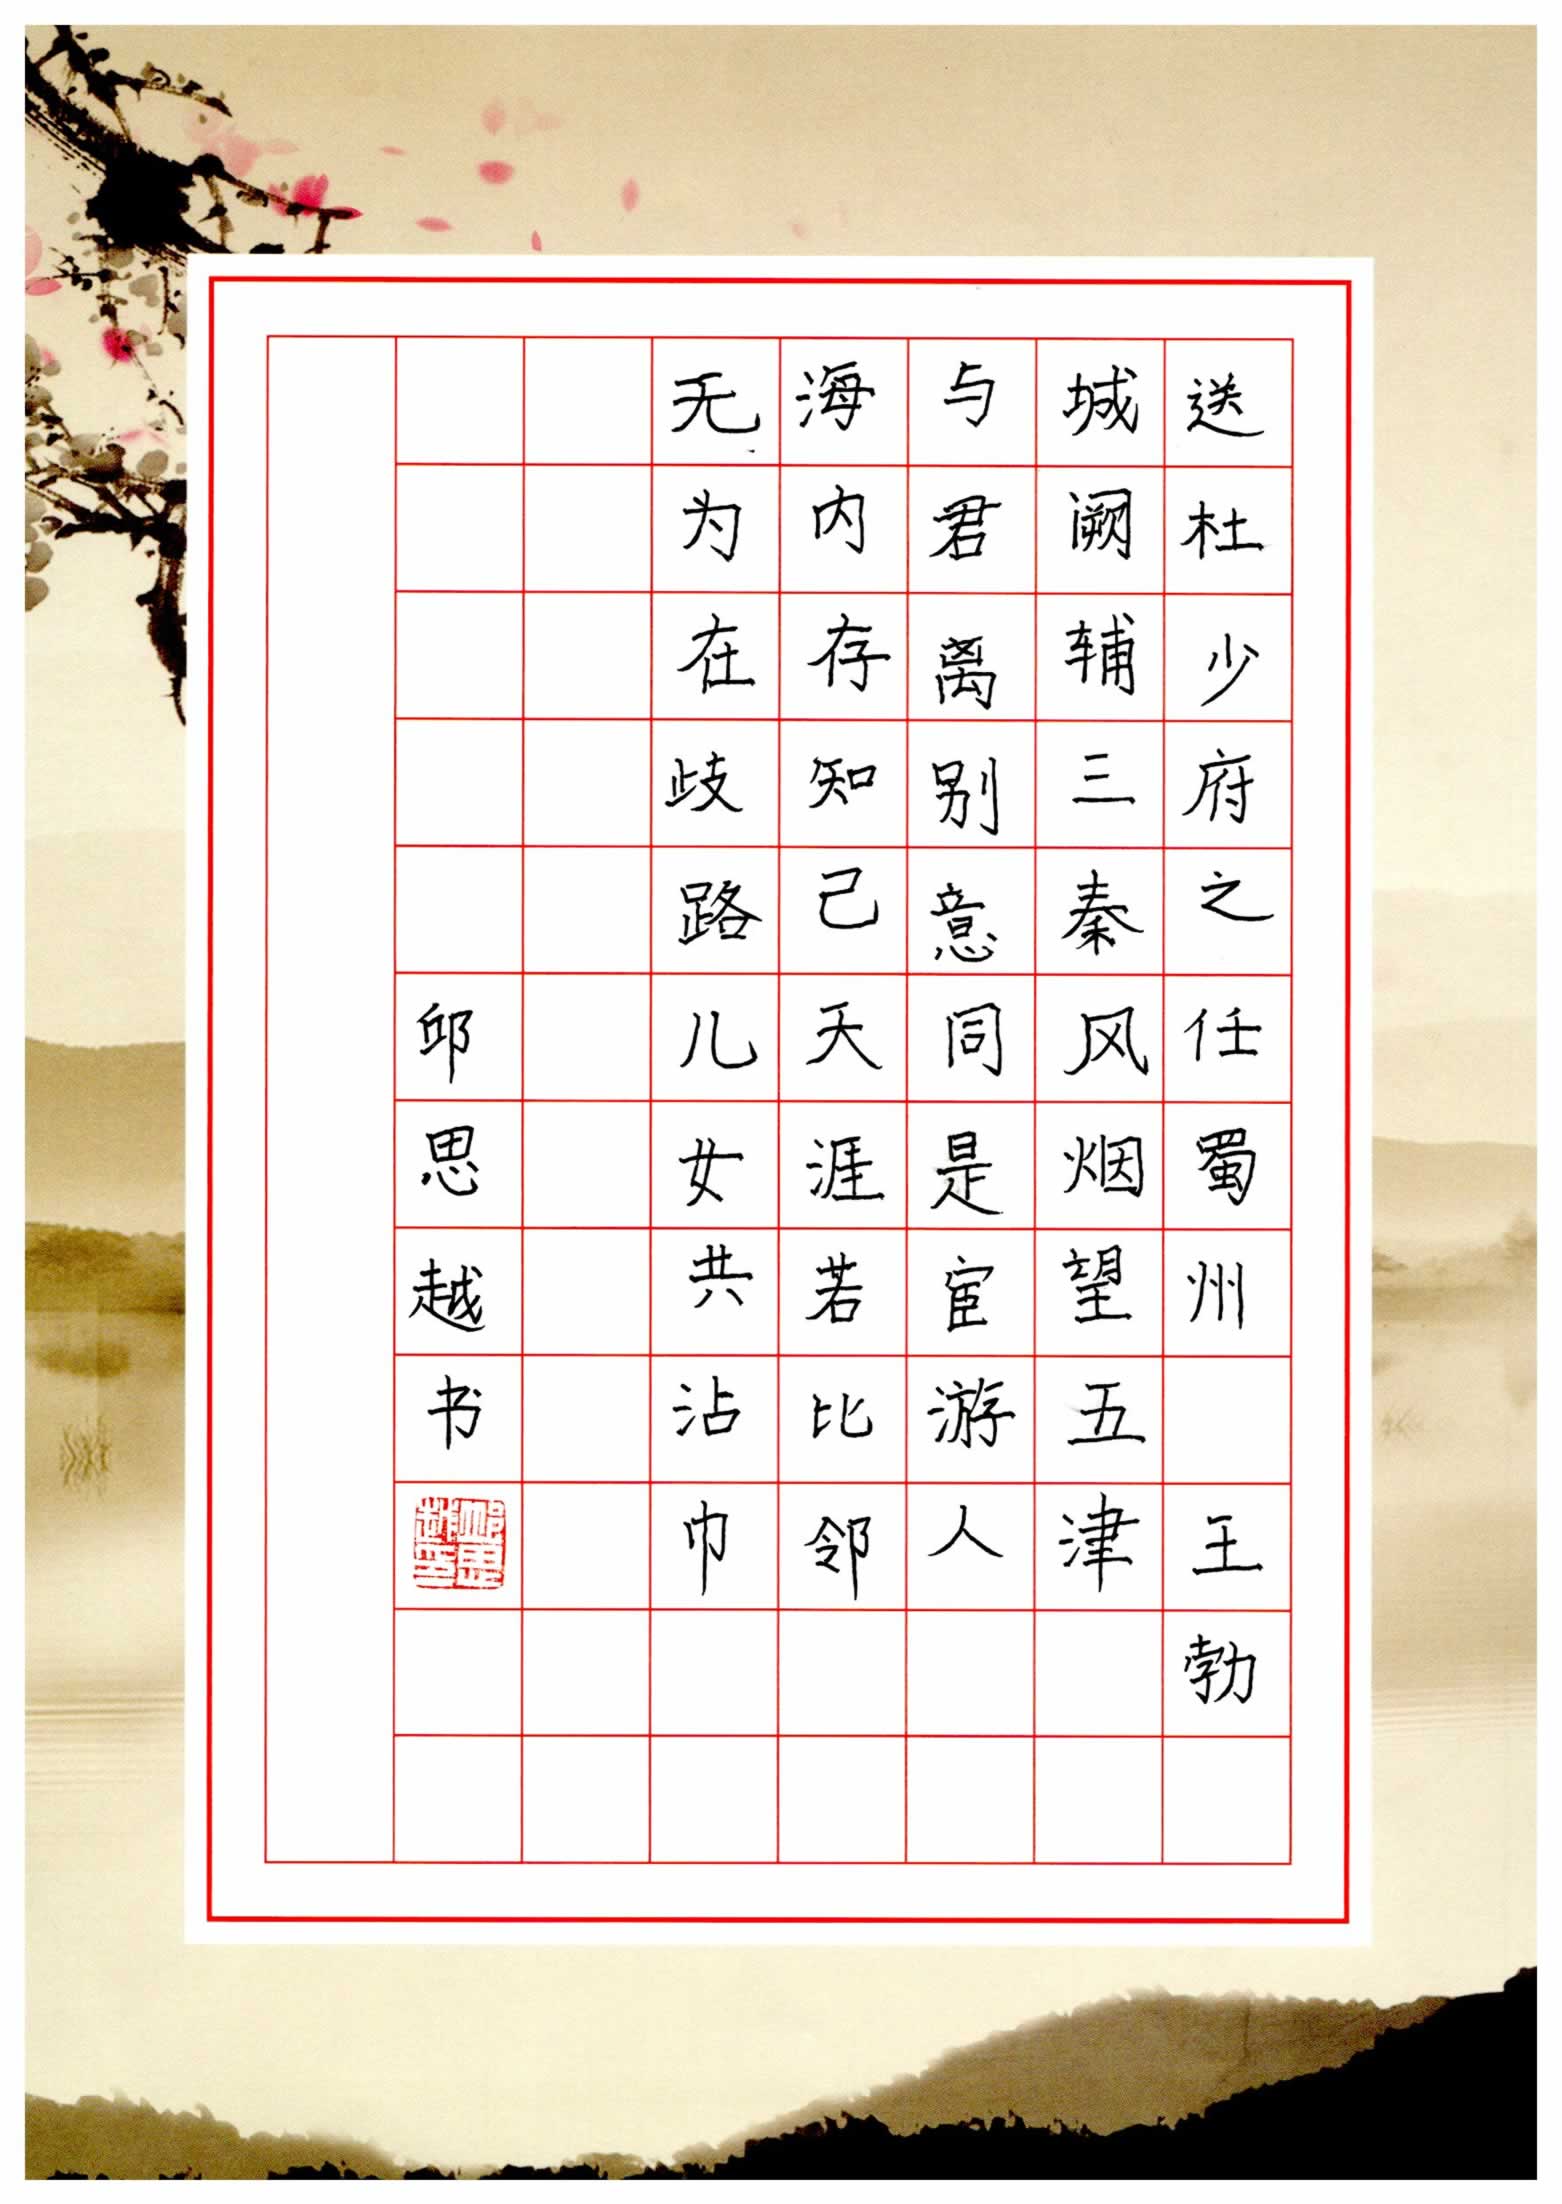 送杜少府之任蜀州 王勃
城阙辅三秦风烟望五津
与君离别意同是宦游人
海内存知己天涯若比邻
无为在歧路儿女共沾巾
邱思越书